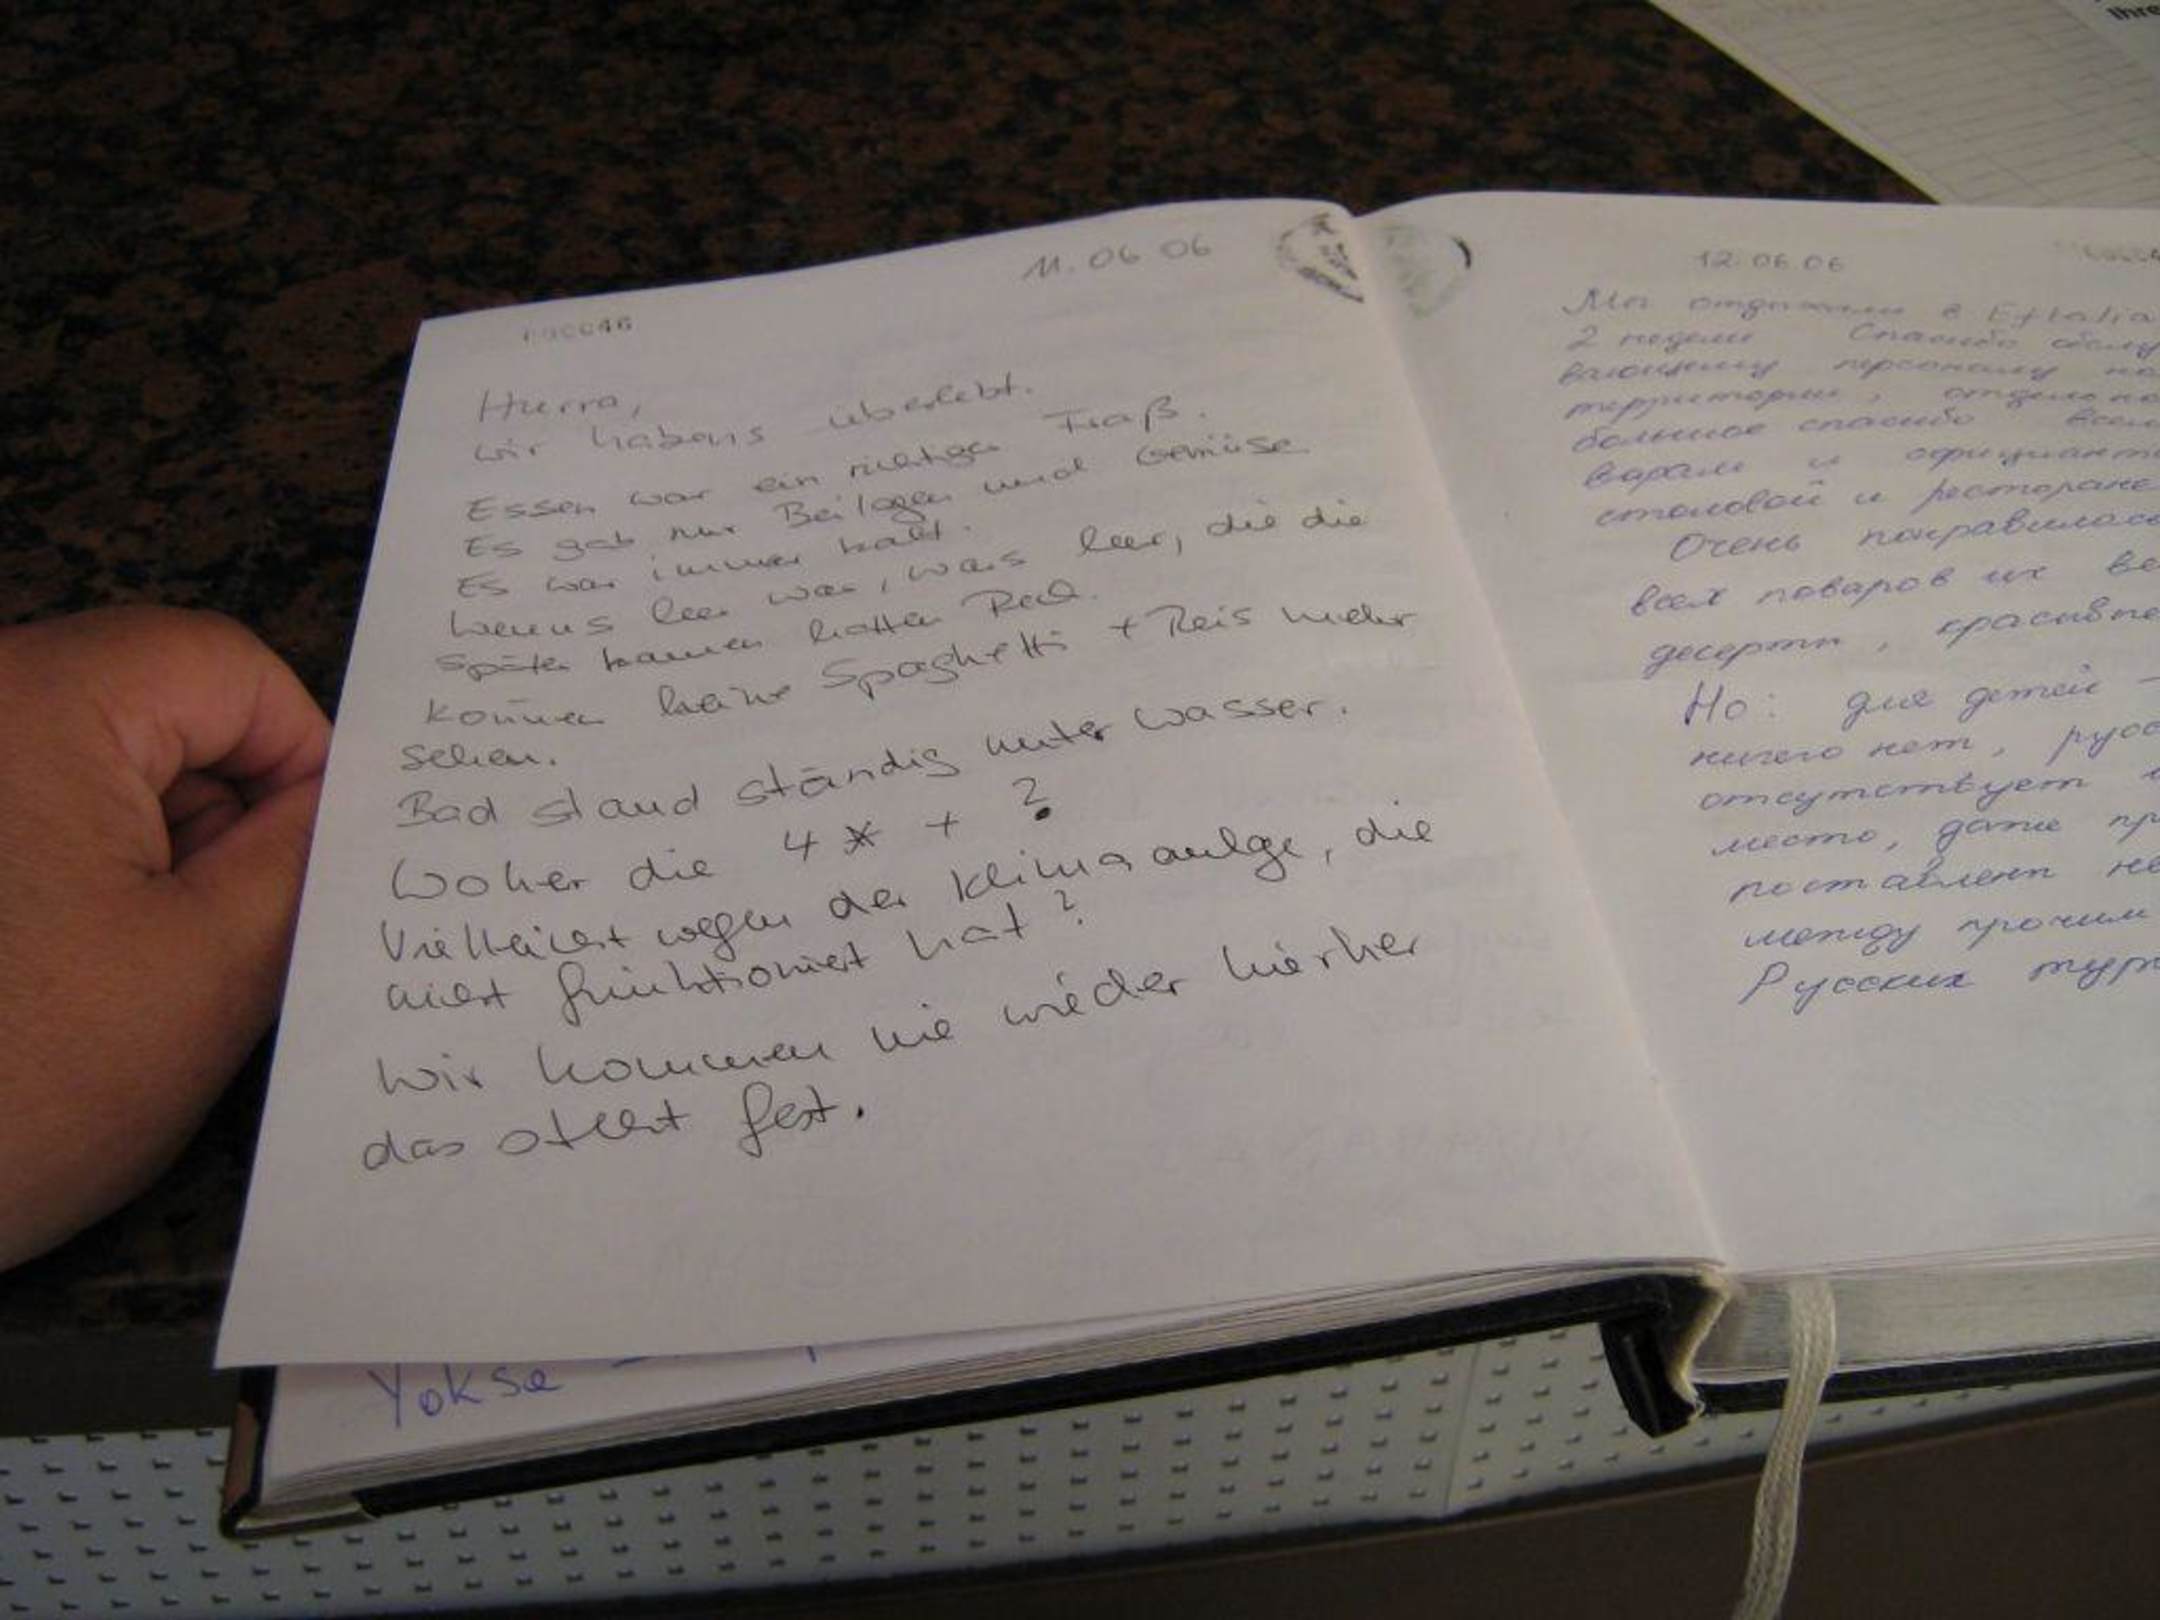 11.06 06
Hurra,
wir habens überlebt.
Essen war ein richtiger Fraß.
Es gab nur Beilagen und Gemüse
Es war immer kalt.
Wenns leer war, wars leer, die die
später kamen hatten Pech.
Können keine Spaghetti + Reis mehr
sehen.
Bad stand ständig unter Wasser.
Woher die 4* + ?
Vielleicht wegen der Klimaanlge, die
nicht funktioniert hat?
Wir kommen nie wieder hierher
das steht fest.
Yoksa
12.06.06
Мы отдыхали в Eftalia
2 недели Спасибо обслу
вающему персоналу на
территории, отдельно
большое спасибо всем
варам и официант
столовой и ресторане
Очень понравилось
всех поваров их ве
десерты, красивые
Но: для детей -
ничего нет, русс
отсутствует
место, даже пр
поставлен не
между прочим
Русских тур
Ihre